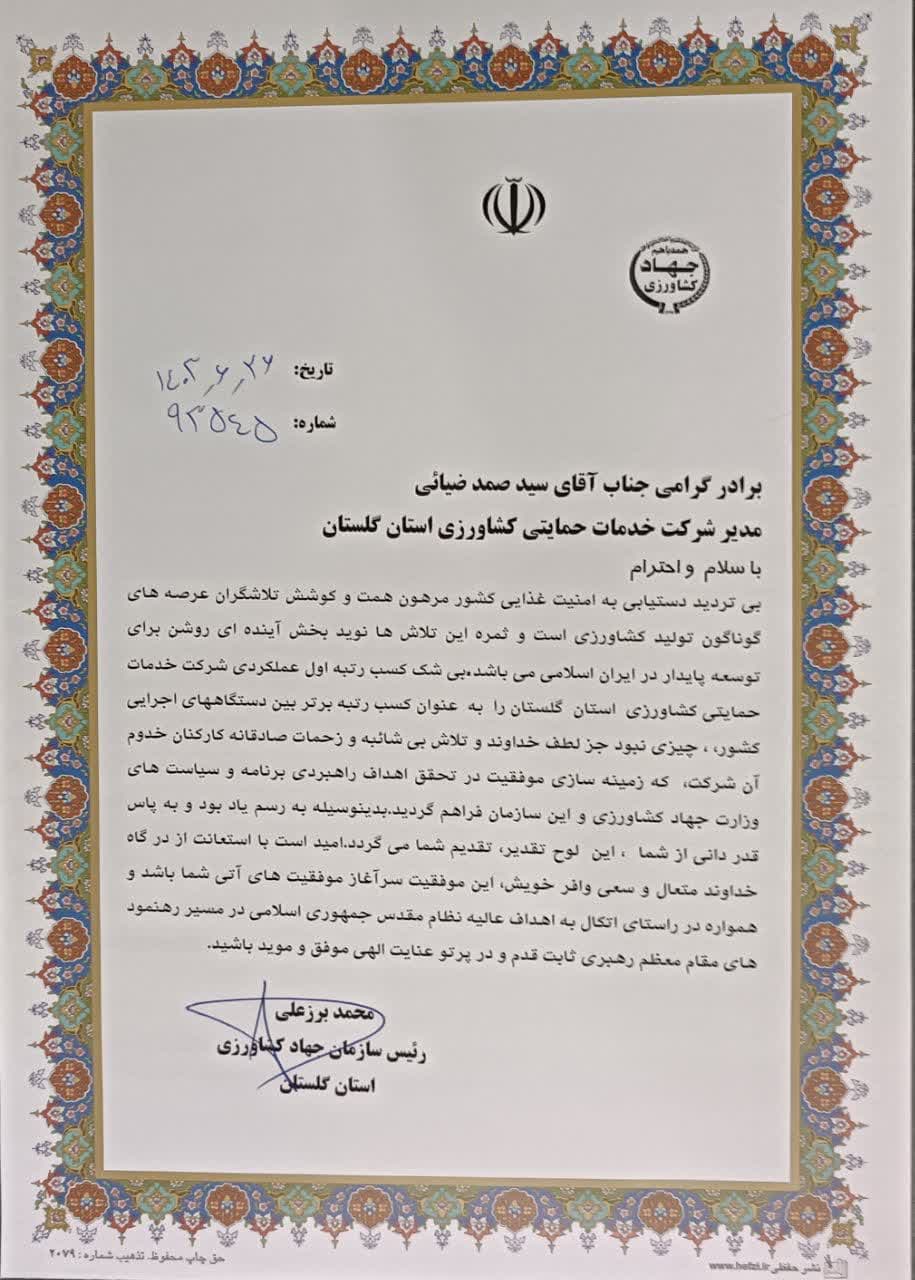 همدلی با هم
جهاد
کشاورزی
تاریخ: ۱۴۰۳٫۶٫۲۶
شماره: ۹۳۵۴۵
برادر گرامی جناب آقای سید صمد ضیائی
مدیر شرکت خدمات حمایتی کشاورزی استان گلستان
با سلام و احترام
بی تردید دستیابی به امنیت غذایی کشور مرهون همت و کوشش تلاشگران عرصه های
گوناگون تولید کشاورزی است و ثمره این تلاش ها نوید بخش آینده ای روشن برای
توسعه پایدار در ایران اسلامی می باشد.بی شک کسب رتبه اول عملکردی شرکت خدمات
حمایتی کشاورزی استان گلستان را به عنوان کسب رتبه برتر بین دستگاههای اجرایی
کشور، ، چیزی نبود جز لطف خداوند و تلاش بی شائبه و زحمات صادقانه کارکنان خدوم
آن شرکت، که زمینه سازی موفقیت در تحقق اهداف راهبردی برنامه و سیاست های
وزارت جهاد کشاورزی و این سازمان فراهم گردید.بدینوسیله به رسم یاد بود و به پاس
قدر دانی از شما ، این لوح تقدیر، تقدیم شما می گردد.امید است با استعانت از در گاه
خداوند متعال و سعی وافر خویش، این موفقیت سرآغاز موفقیت های آتی شما باشد و
همواره در راستای اتکال به اهداف عالیه نظام مقدس جمهوری اسلامی در مسیر رهنمود
های مقام معظم رهبری ثابت قدم و در پرتو عنایت الهی موفق و موید باشید.
محمد برزعلی
رئیس سازمان جهاد کشاورزی
استان گلستان
حق چاپ محفوظ. تذهیب شماره : ۲۰۷۹
نشر حفظی www.hefzi.ir